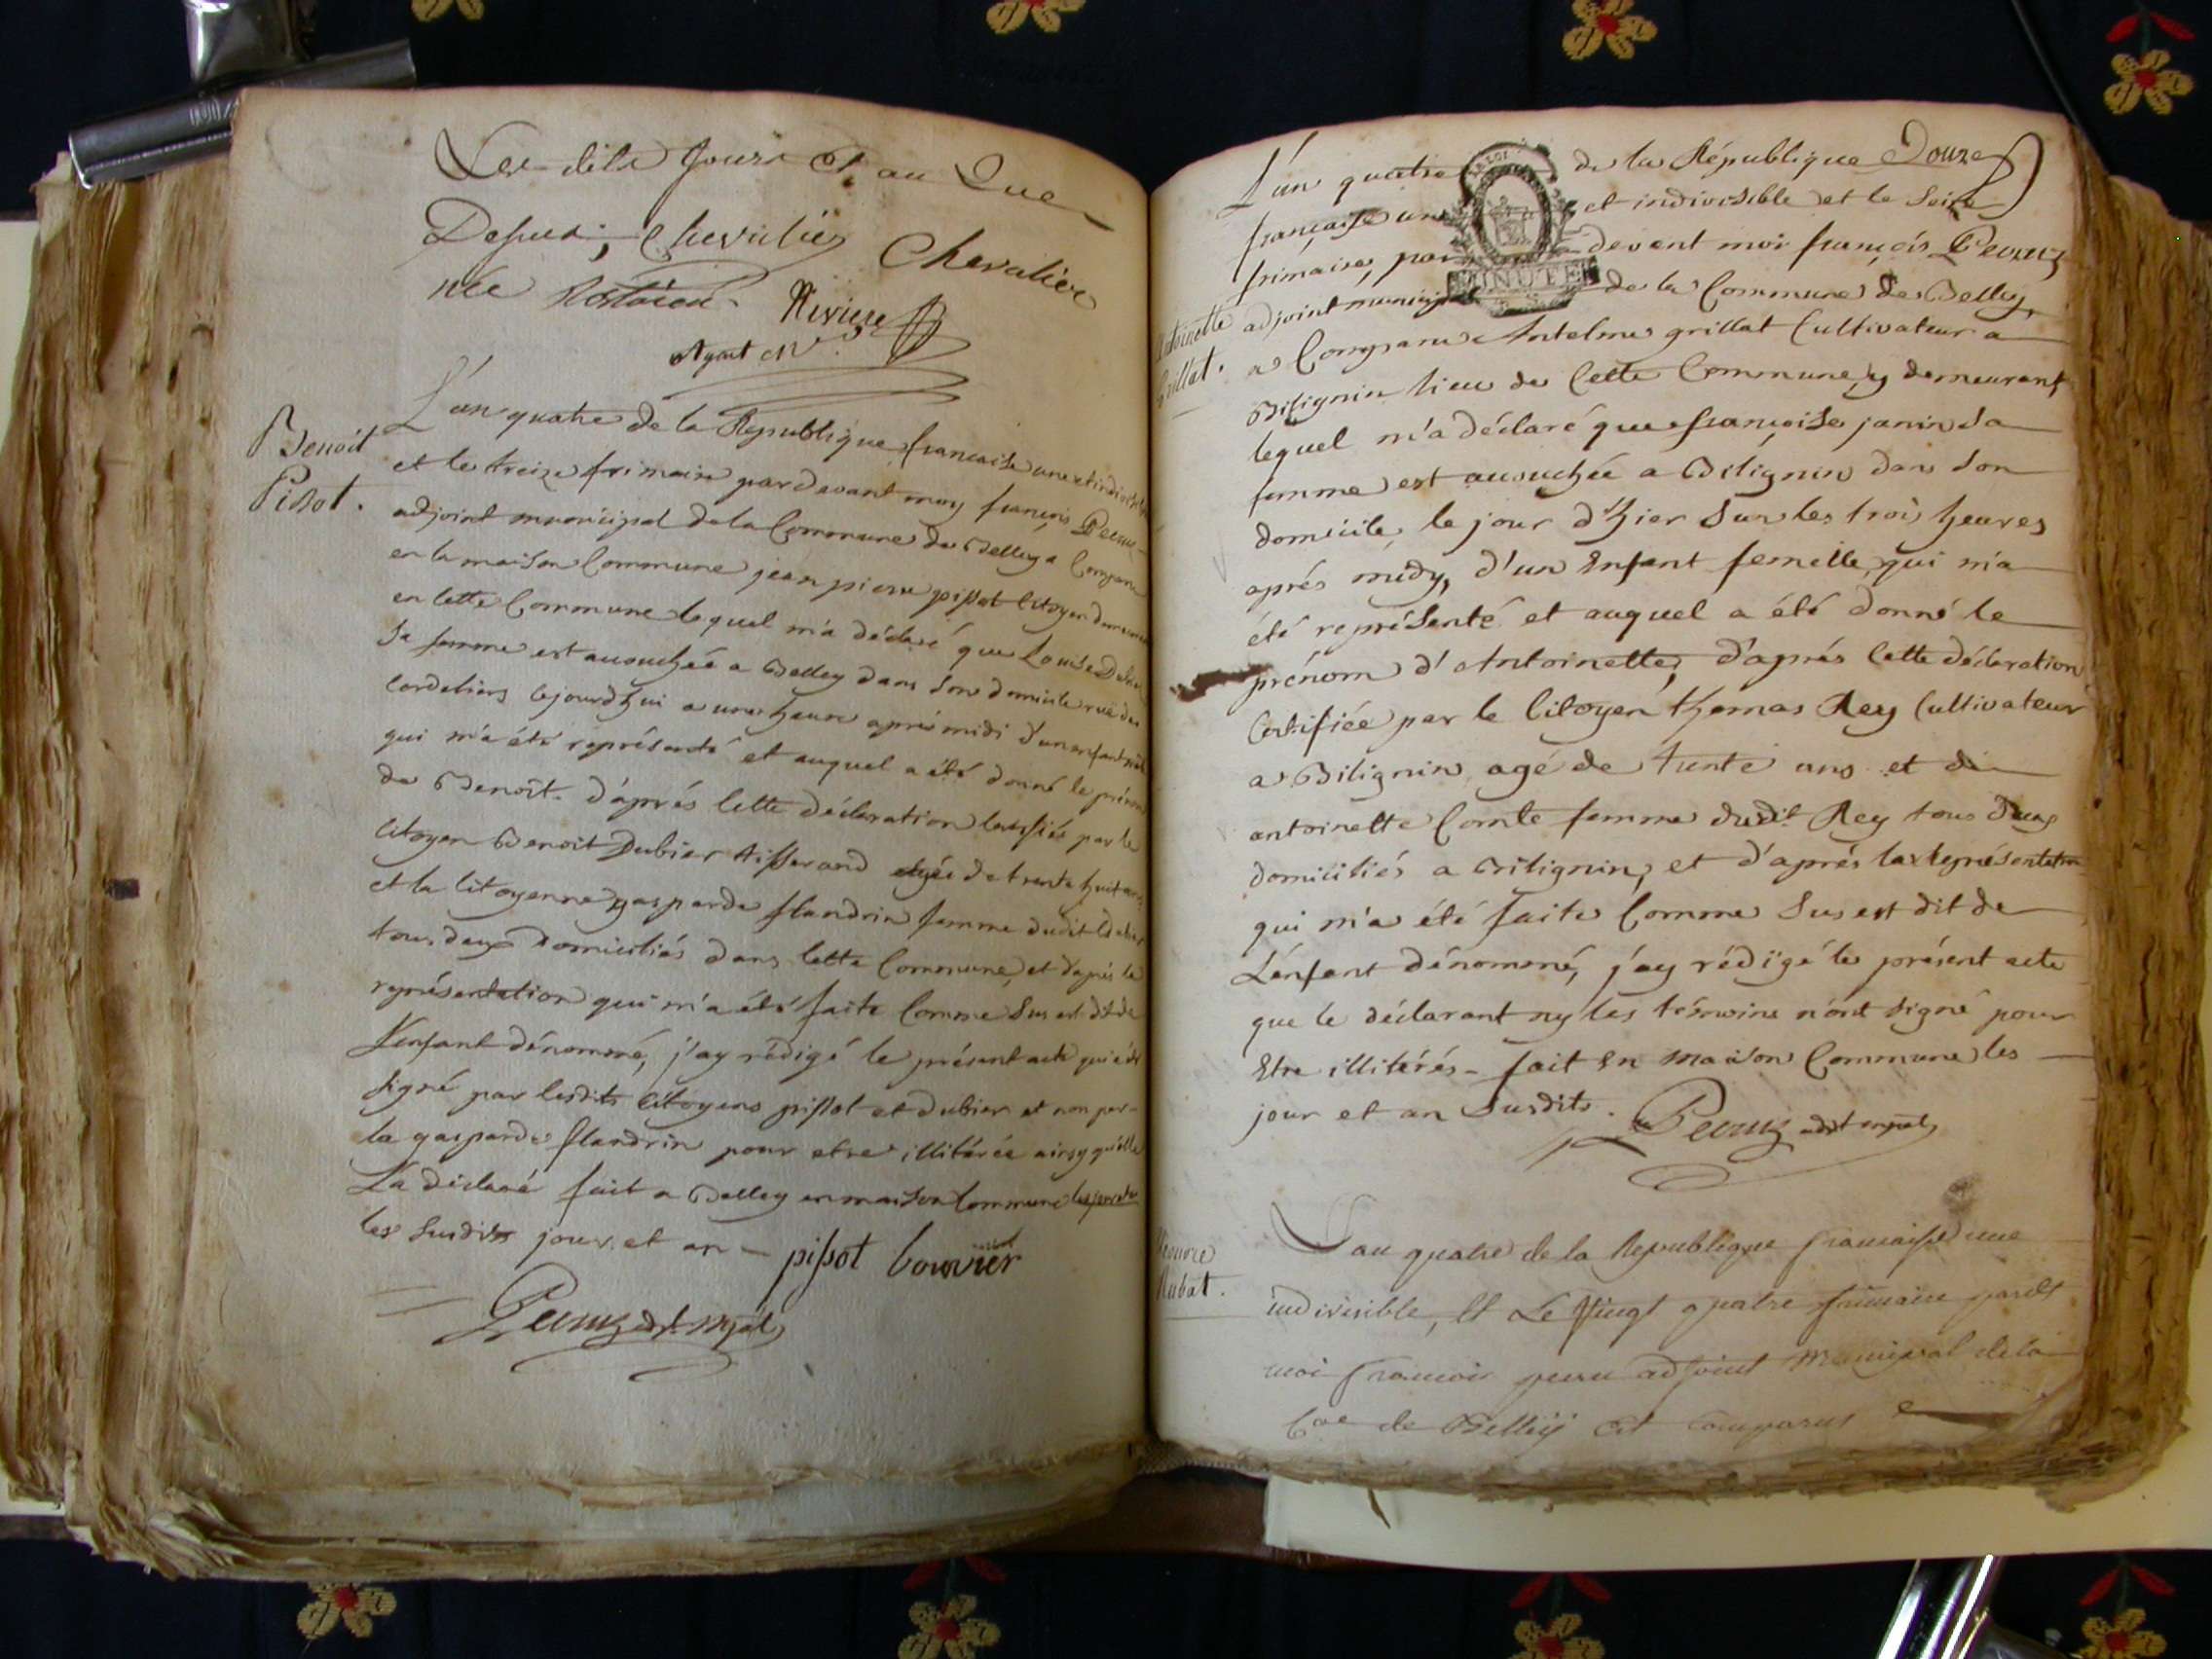 Les dits jours et an Que
Chevalier
née
Chevalier
Riviere
Agent
Benoit
Pissot.
L'an quatre de la République française une et indivisible
et le treize frimaire par devant moy françois
adjoint municipal de la Commune de Belley a Comparu
en la maison Commune jean pierre pissot citoyen
en cette Commune lequel m'a déclaré que Louise
sa femme est accouchée a Belley dans son domicile rue des
Cordeliers cejourdhui a une heure aprés midi d'un enfant
qui m'a été représenté et auquel a été donné le prénom
de Benoît. d'aprés cette déclaration certifiée par le
citoyen Benoit Dubier tisserand agée de trente huit ans
et la citoyenne gasparde flandrin femme dudit
tous deux domiciliés dans cette Commune, et d'aprés la
représentation qui m'a été faite Comme sus est dit de
L'enfant dénommé, j'ay rédigé le présent acte qui a été
signé par lesdits citoyens pissot et dubier et non par
la gasparde flandrin pour etre illitérée ainsy qu'elle
L'a déclaré fait a Belley en maison Commune
les susdits jour et an - pissot bouvier
Antoinette
Grillat.
L'an quatre de la République Douze
française une et indivisible et le seize
frimaire, par devant moi françois
adjoint municipal de la Commune de Belley,
a Comparu Antelme grillat Cultivateur a
Bilignin lieu de Cette Commune y demeurant
lequel m'a déclaré que françoise janin sa
femme est accouchée a Bilignin dans son
domicile, le jour d'hier sur les trois heures
aprés midy, d'un Enfant femelle qui m'a
été représenté et auquel a été donné le
prénom d'Antoinette, d'aprés cette déclaration
Certifiée par le Citoyen thomas Rey Cultivateur
a Bilignin agé de trente ans et de
antoinette Comte femme dudit Rey tous deux
domiciliés a Bilignin, et d'aprés la représentation
qui m'a été faite Comme sus est dit de
L'enfant dénommé, j'ay rédigé le présent acte
que le déclarant ny les témoins n'ont signé pour
Etre illitérés - fait en maison Commune les
jour et an susdits.
Rubat.
L'an quatre de la Republique française une
indivisible, et Le vingt quatre frimaire pardt
moi francois adjoint Municipal de la
Cne de Belley Est comparus